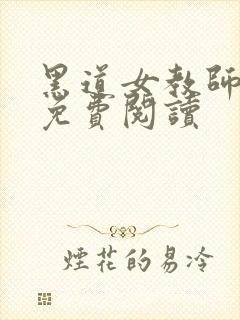 黑道女教師
免費閱讀
煙花的易冷